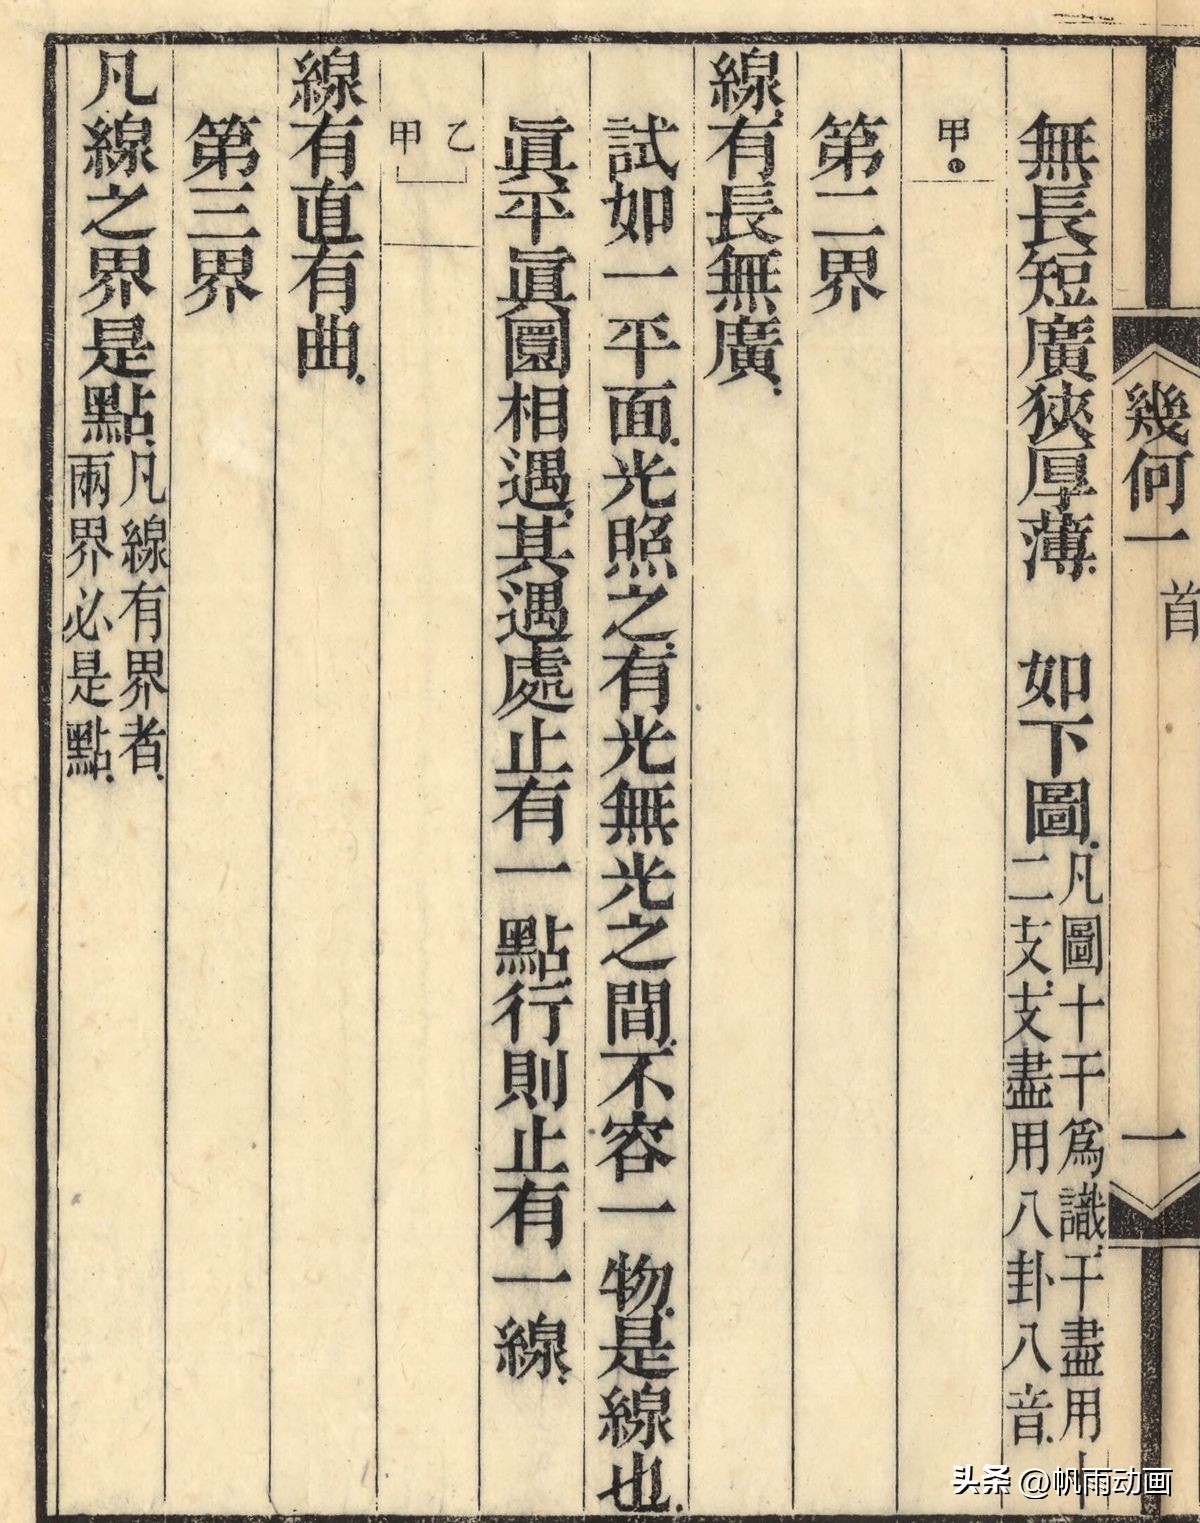 幾何一 首 一
無長短廣狹厚薄 如下圖凡圖十干爲識干盡用十
二支支盡用八卦八音
甲
第二界
線有長無廣
試如一平面光照之有光無光之間不容一物是線也
眞平眞圜相遇其遇處止有一點行則止有一線
乙
甲
線有直有曲
第三界
凡線之界是點凡線有界者
兩界必是點
头条 @帆雨动画